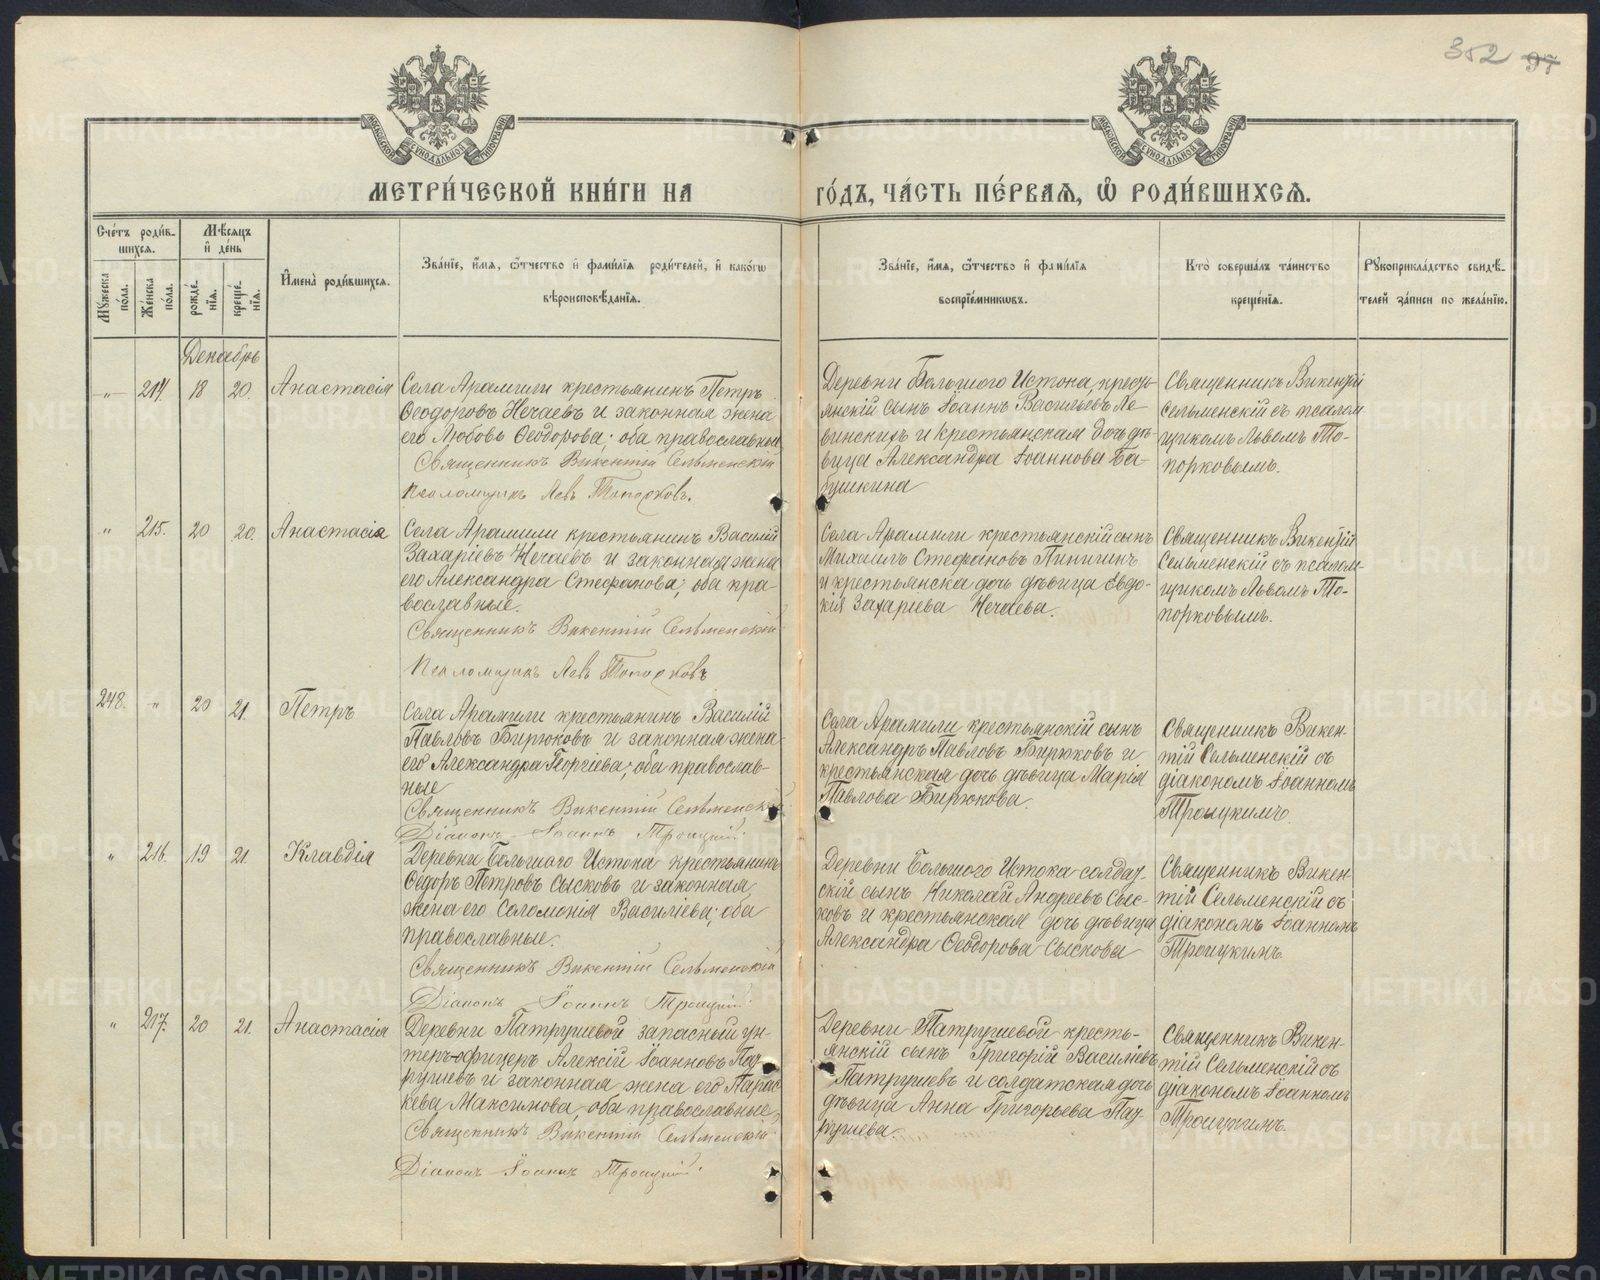 352 97
МОСКОВСКОЙ СѴНОДАЛЬНОЙ ТИПОГРАФІИ
МОСКОВСКОЙ СѴНОДАЛЬНОЙ ТИПОГРАФІИ
МЕТРИ́ЧЕСКОЙ КНИ́ГИ НА
ГО́ДЪ, ЧА́СТЬ ПЕ́РВАЯ, Ѽ РОДИ́ВШИХСЯ.
Сче́тъ роди́в-
шихся.
Мѣ́сяцъ
и҆ де́нь
Мꙋ́жеска по́ла.
Же́нска по́ла.
рожде́нїѧ.
креще́нїѧ.
И҆мена̀ роди́вшихся.
Зва́нїе, и҆́мѧ, ѻ҆́тчество и҆ фами́лїѧ роди́телей, и҆ како́гѡ
вѣроисповѣ́данїѧ.
Зва́нїе, и҆́мѧ, ѻ҆́тчество и҆ фами́лїѧ
воспрїе́мникѡвъ.
Кто̀ соверша́лъ та́инство
креще́нїѧ.
Рꙋкоприкла́дство свидѣ́-
телей за́писи по жела́нїю.
Декабрь
„ 214. 18 20. Анастасія
Села Арамили крестьянинъ Петръ
Ѳеодоровъ Нечаевъ и законная жена
его Любовь Ѳеодорова; оба православные
Священникъ Викентій Сельменскій
Псаломщикъ Левъ Топорковъ.
Деревни Большого Истока, кресть-
янскій сынъ Іоаннъ Васильевъ Ле-
винскихъ и крестьянская дочь дѣ-
вица Александра Іоаннова Ба-
бушкина
Священникъ Викентій
Сельменскій съ псалом
щикомъ Львомъ То-
порковымъ.
„ 215. 20 20. Анастасія
Села Арамили крестьянинъ Василій
Захаріевъ Нечаевъ и законная жена
его Александра Стефанова; оба пра-
вославные.
Священникъ Викентій Сельменскій
Псаломщикъ Левъ Топорковъ
Села Арамили крестьянскій сынъ
Михаилъ Стефановъ Пинигинъ
и крестьянска дочь дѣвица Евдо-
кія Захаріева Нечаева.
Священникъ Викентій
Сельменскій съ псалом
щикомъ Львомъ То-
порковымъ.
248. „ 20 21. Петръ
Села Арамили крестьянинъ Василій
Павловъ Бирюковъ и законная жена
его Александра Георгіева; оба православ-
ные
Священникъ Викентій Сельменскій
Діаконъ Іоаннъ Троицкій.
Села Арамили крестьянскій сынъ
Александръ Павловъ Бирюковъ и
крестьянская дочь дѣвица Марія
Павлова Бирюкова.
Священникъ Викен-
тій Сельменскій съ
діакономъ Іоанномъ
Троицкимъ.
„ 216. 19 21. Клавдія
Деревни Большого Истока крестьянинъ
Ѳедоръ Петровъ Сысковъ и законная
жена его Соломонія Василіева; оба
православные.
Священникъ Викентій Сельменскій
Діаконъ Іоаннъ Троицкій.
Деревни Большого Истока солдат-
скій сынъ Николай Андреевъ Сыс-
ковъ и крестьянская дочь дѣвица
Александра Ѳеодорова Сыскова
Священникъ Викен-
тій Сельменскій съ
діакономъ Іоанномъ
Троицкимъ.
„ 217. 20 21. Анастасія
Деревни Патрушевой запасный ун-
теръ-офицеръ Алексій Іоанновъ Пат-
рушевъ и законная жена его Парас-
кева Максимова, оба православные,
Священникъ Викентій Сельменскій
Діаконъ Іоаннъ Троицкій.
Деревни Патрушевой кресть-
янскій сынъ Григорій Василіевъ
Патрушевъ и солдатская дочь
дѣвица Анна Григорьева Пат-
рушева.
Священникъ Викен-
тій Сельменскій съ
діакономъ Іоанномъ
Троицкимъ.
METRIKI.GASO-URAL.RU